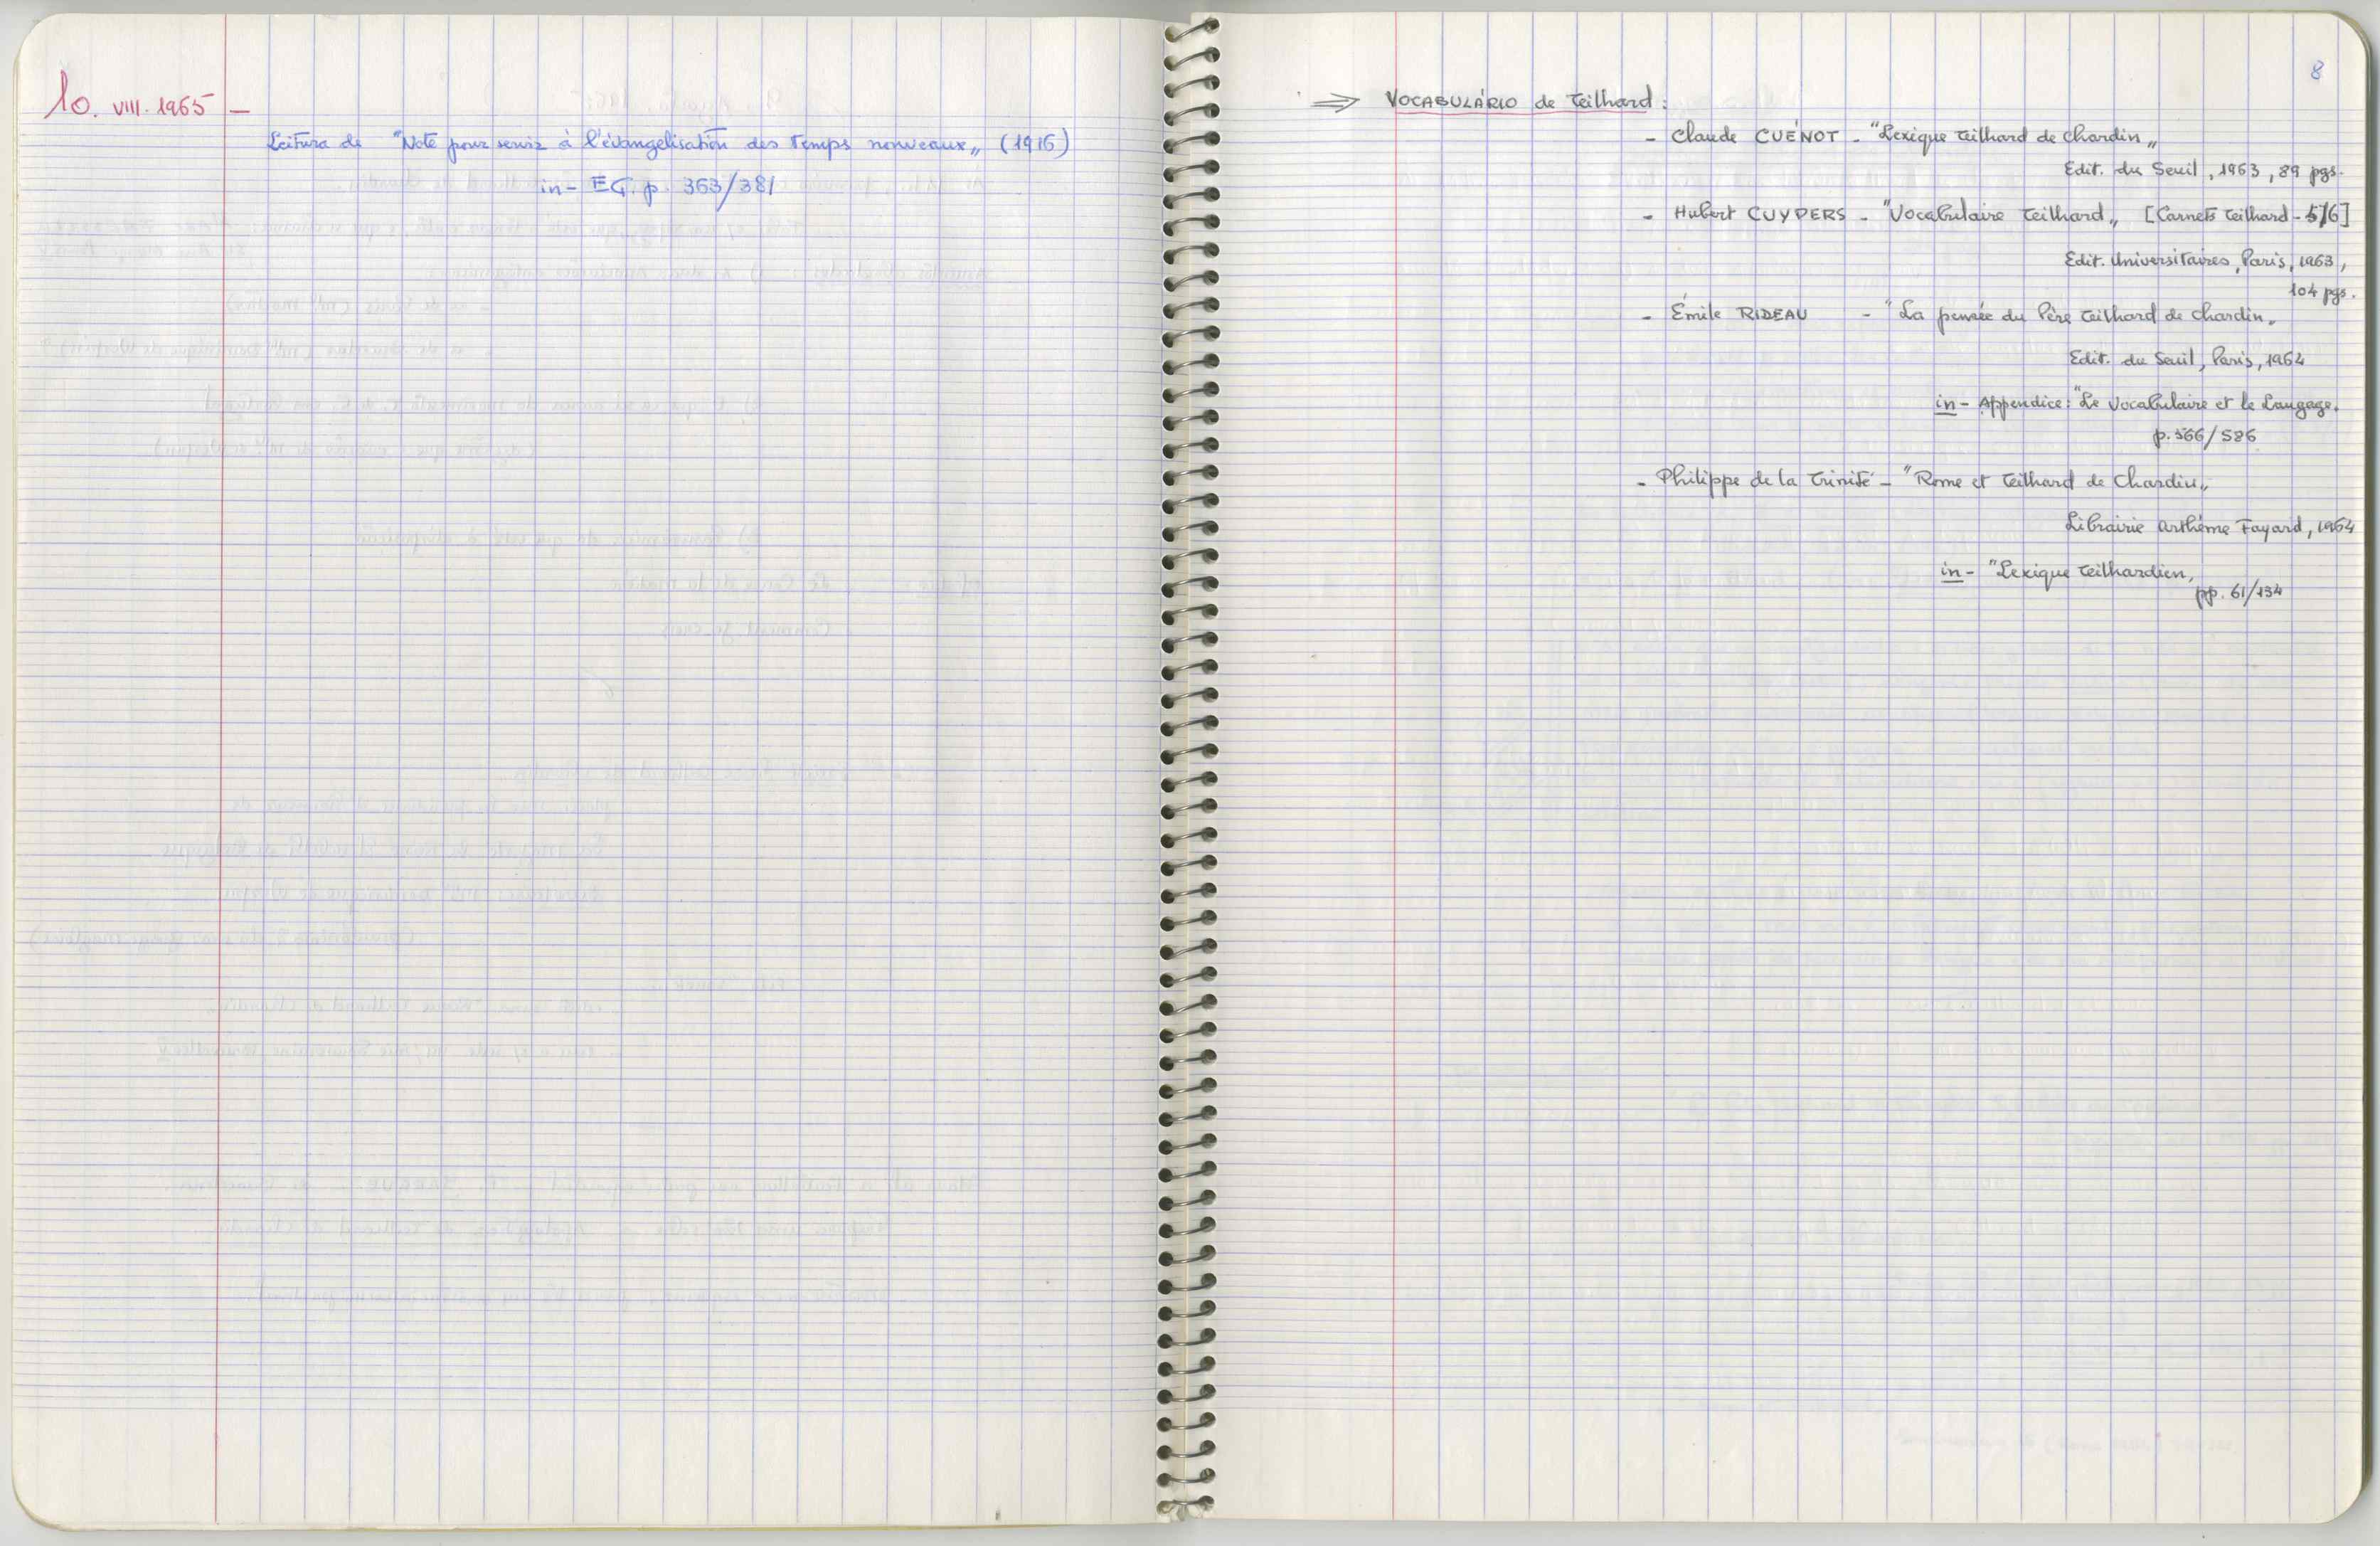 10. VIII. 1965 —
Leitura de "Note pour servir à l'évangelisation des temps nouveaux„ (1916)
in - EG. p. 363/381
8
⇒ VOCABULÁRIO de Teilhard:
- Claude CUÉNOT - "Lexique Teilhard de Chardin„
Edit. du Seuil, 1963, 89 pgs.
- Hubert CUYPERS - "Vocabulaire Teilhard„ [Carnets Teilhard - 5/6]
Edit. Universitaires, Paris, 1963,
104 pgs.
- Émile RIDEAU - "La pensée du Père Teilhard de Chardin„
Edit. du Seuil, Paris, 1964
in - Appendice: "Le Vocabulaire et le Langage„
p. 566/586
- Philippe de la Trinité - "Rome et Teilhard de Chardin„
Librairie Arthème Fayard, 1964
in - "Lexique Teilhardien„
pp. 61/134